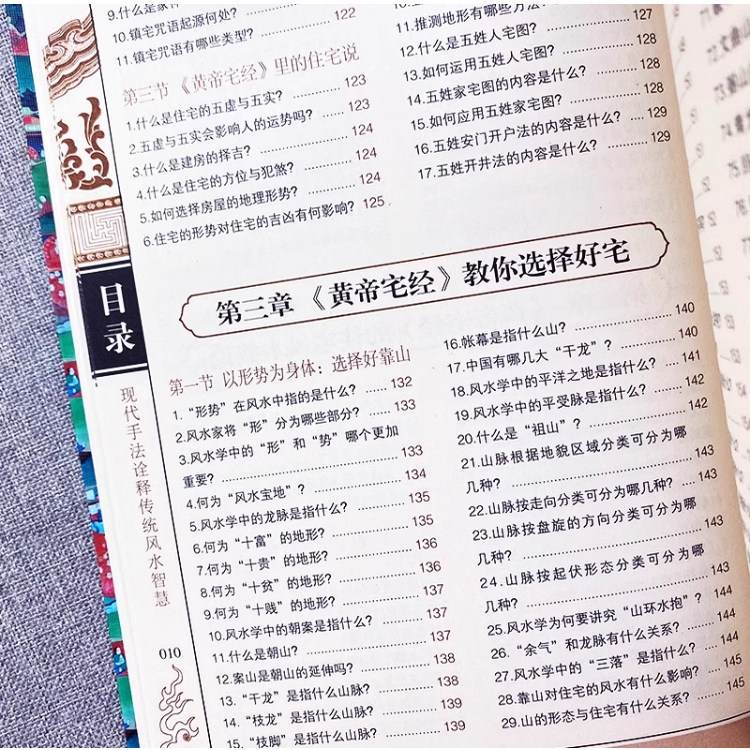 9.什么是家
10.镇宅咒语起源何处? 122
11.镇宅咒语有哪些类型?
第三节 《黄帝宅经》里的住宅说
1.什么是住宅的五虚与五实? 123
2.五虚与五实会影响人的运势吗? 123
3.什么是建房的择吉? 124
4.什么是住宅的方位与犯煞? 124
5.如何选择房屋的地理形势? 124
6.住宅的形势对住宅的吉凶有何影响? 125
11.推测地形有哪些方
12.什么是五姓人宅图? 128
13.如何运用五姓人宅图? 128
14.五姓家宅图的内容是什么? 128
15.如何应用五姓家宅图? 128
16.五姓安门开户法的内容是什么? 129
17.五姓开井法的内容是什么? 129
第三章 《黄帝宅经》教你选择好宅
第一节 以形势为身体:选择好靠山
1.“形势”在风水中指的是什么? 132
2.风水家将“形”分为哪些部分? 133
3.风水学中的“形”和“势”哪个更加
重要? 133
4.何为“风水宝地”? 134
5.风水学中的龙脉是指什么? 135
6.何为“十富”的地形? 135
7.何为“十贵”的地形? 136
8.何为“十贫”的地形? 136
9.何为“十贱”的地形? 137
10.风水学中的朝案是指什么? 137
11.什么是朝山? 137
12.案山是朝山的延伸吗? 138
13.“干龙”是指什么山脉? 138
14.“枝龙”是指什么山脉? 139
15.“枝脚”是指什么山脉? 139
16.帐幕是指什么山? 140
17.中国有哪几大“干龙”? 140
18.风水学中的平洋之地是指什么? 141
19.风水学中的平受脉是指什么? 142
20.什么是“祖山”? 142
21.山脉根据地貌区域分类可分为哪
几种? 143
22.山脉按走向分类可分为哪几种? 143
23.山脉按盘旋的方向分类可分为哪
几种? 143
24.山脉按起伏形态分类可分为哪
几种? 143
25.风水学为何要讲究“山环水抱”? 144
26.“余气”和龙脉有什么关系? 144
27.风水学中的“三落”是指什么? 144
28.靠山对住宅的风水有什么影响? 145
29.山的形态与住宅有什么关系? 145
目录
现代手法诠释传统风水智慧
010